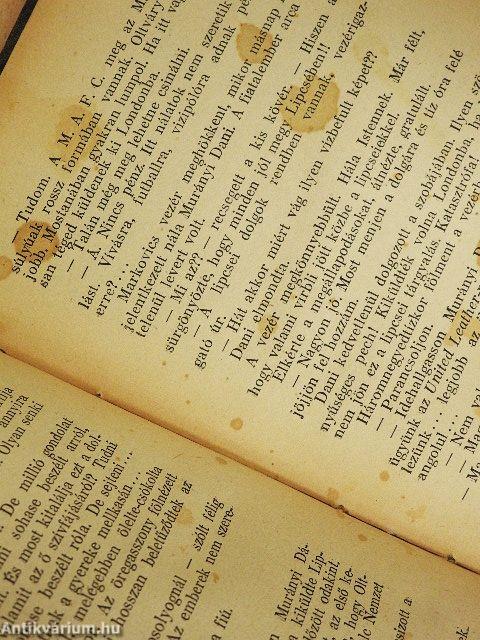 Tudom. A M. A. F. C. meg az M
súlyúak rossz formában vannak. Oltváry
jobb. Mostanában gyakran lumpol. Ha itt va
san téged küldenek ki Londonba.
— Talán még meg lehetne csinálni.
— Á. Nincs pénz. Itt nálatok nem szeretik
lást. Vívásra, futballra, vízipólóra adnak
erre? ...
Markovics vezér meghökkent, mikor másnap
jelentkezett nála Murányi Dani. A fiatalember arca
telenül levert volt.
— Mi az?? — reccsegett a kis kövér. — Hiszen a
sürgönyözte, hogy minden jól megy Lipcsében!!
— A lipcsei dolgok rendben vannak, vezérigaz-
gató úr.
— Hát akkor miért vág ilyen vízbefult képet??
Dani elmondta.
A vezér megkönnyebbült. Hála Istennek. Már félt,
hogy valami vírbli jött közbe a lipcseiekkel.
Elkérte a megállapodásokat, átnézte, gratulált.
— Nagyon jó. Most menjen a dolgára és tíz óra felé
jöjjön fel hozzám.
Dani kedvetlenül dolgozott a szobájában. Ilyen sz
nyűséges pech! Kiküldték volna Londonba, ha
nem jön ez a lipcsei tárgyadás. Katasztrófa
Háromnegyedtízkor fölment a vezérh
— Parancsoljon.
— Idehallgasson, Murányi D
ügyünk az United Leather
tezünk ... legjobb az i
angolul ...
— Nem
— Ma
— Ma
annyira
Olyan senki
De millió gondolat
sohase beszélt arról,
És most kitalálja ezt a dol-
amit az ő szívfájásáról? Tudni
se beszélt róla. De sejteni ...
k a gyereke melkasán ...
melegebben ölelte-csókolta
Az öregasszony fölnézett
hosszan beletűződtek az
osolyognál — szólt félig
Az emberek nem szere-
a fii.
Murányi Dá-
kiküldte Lip-
odakint
az első ke-
hogy Olt-
Nemzet
Antikvárium.hu